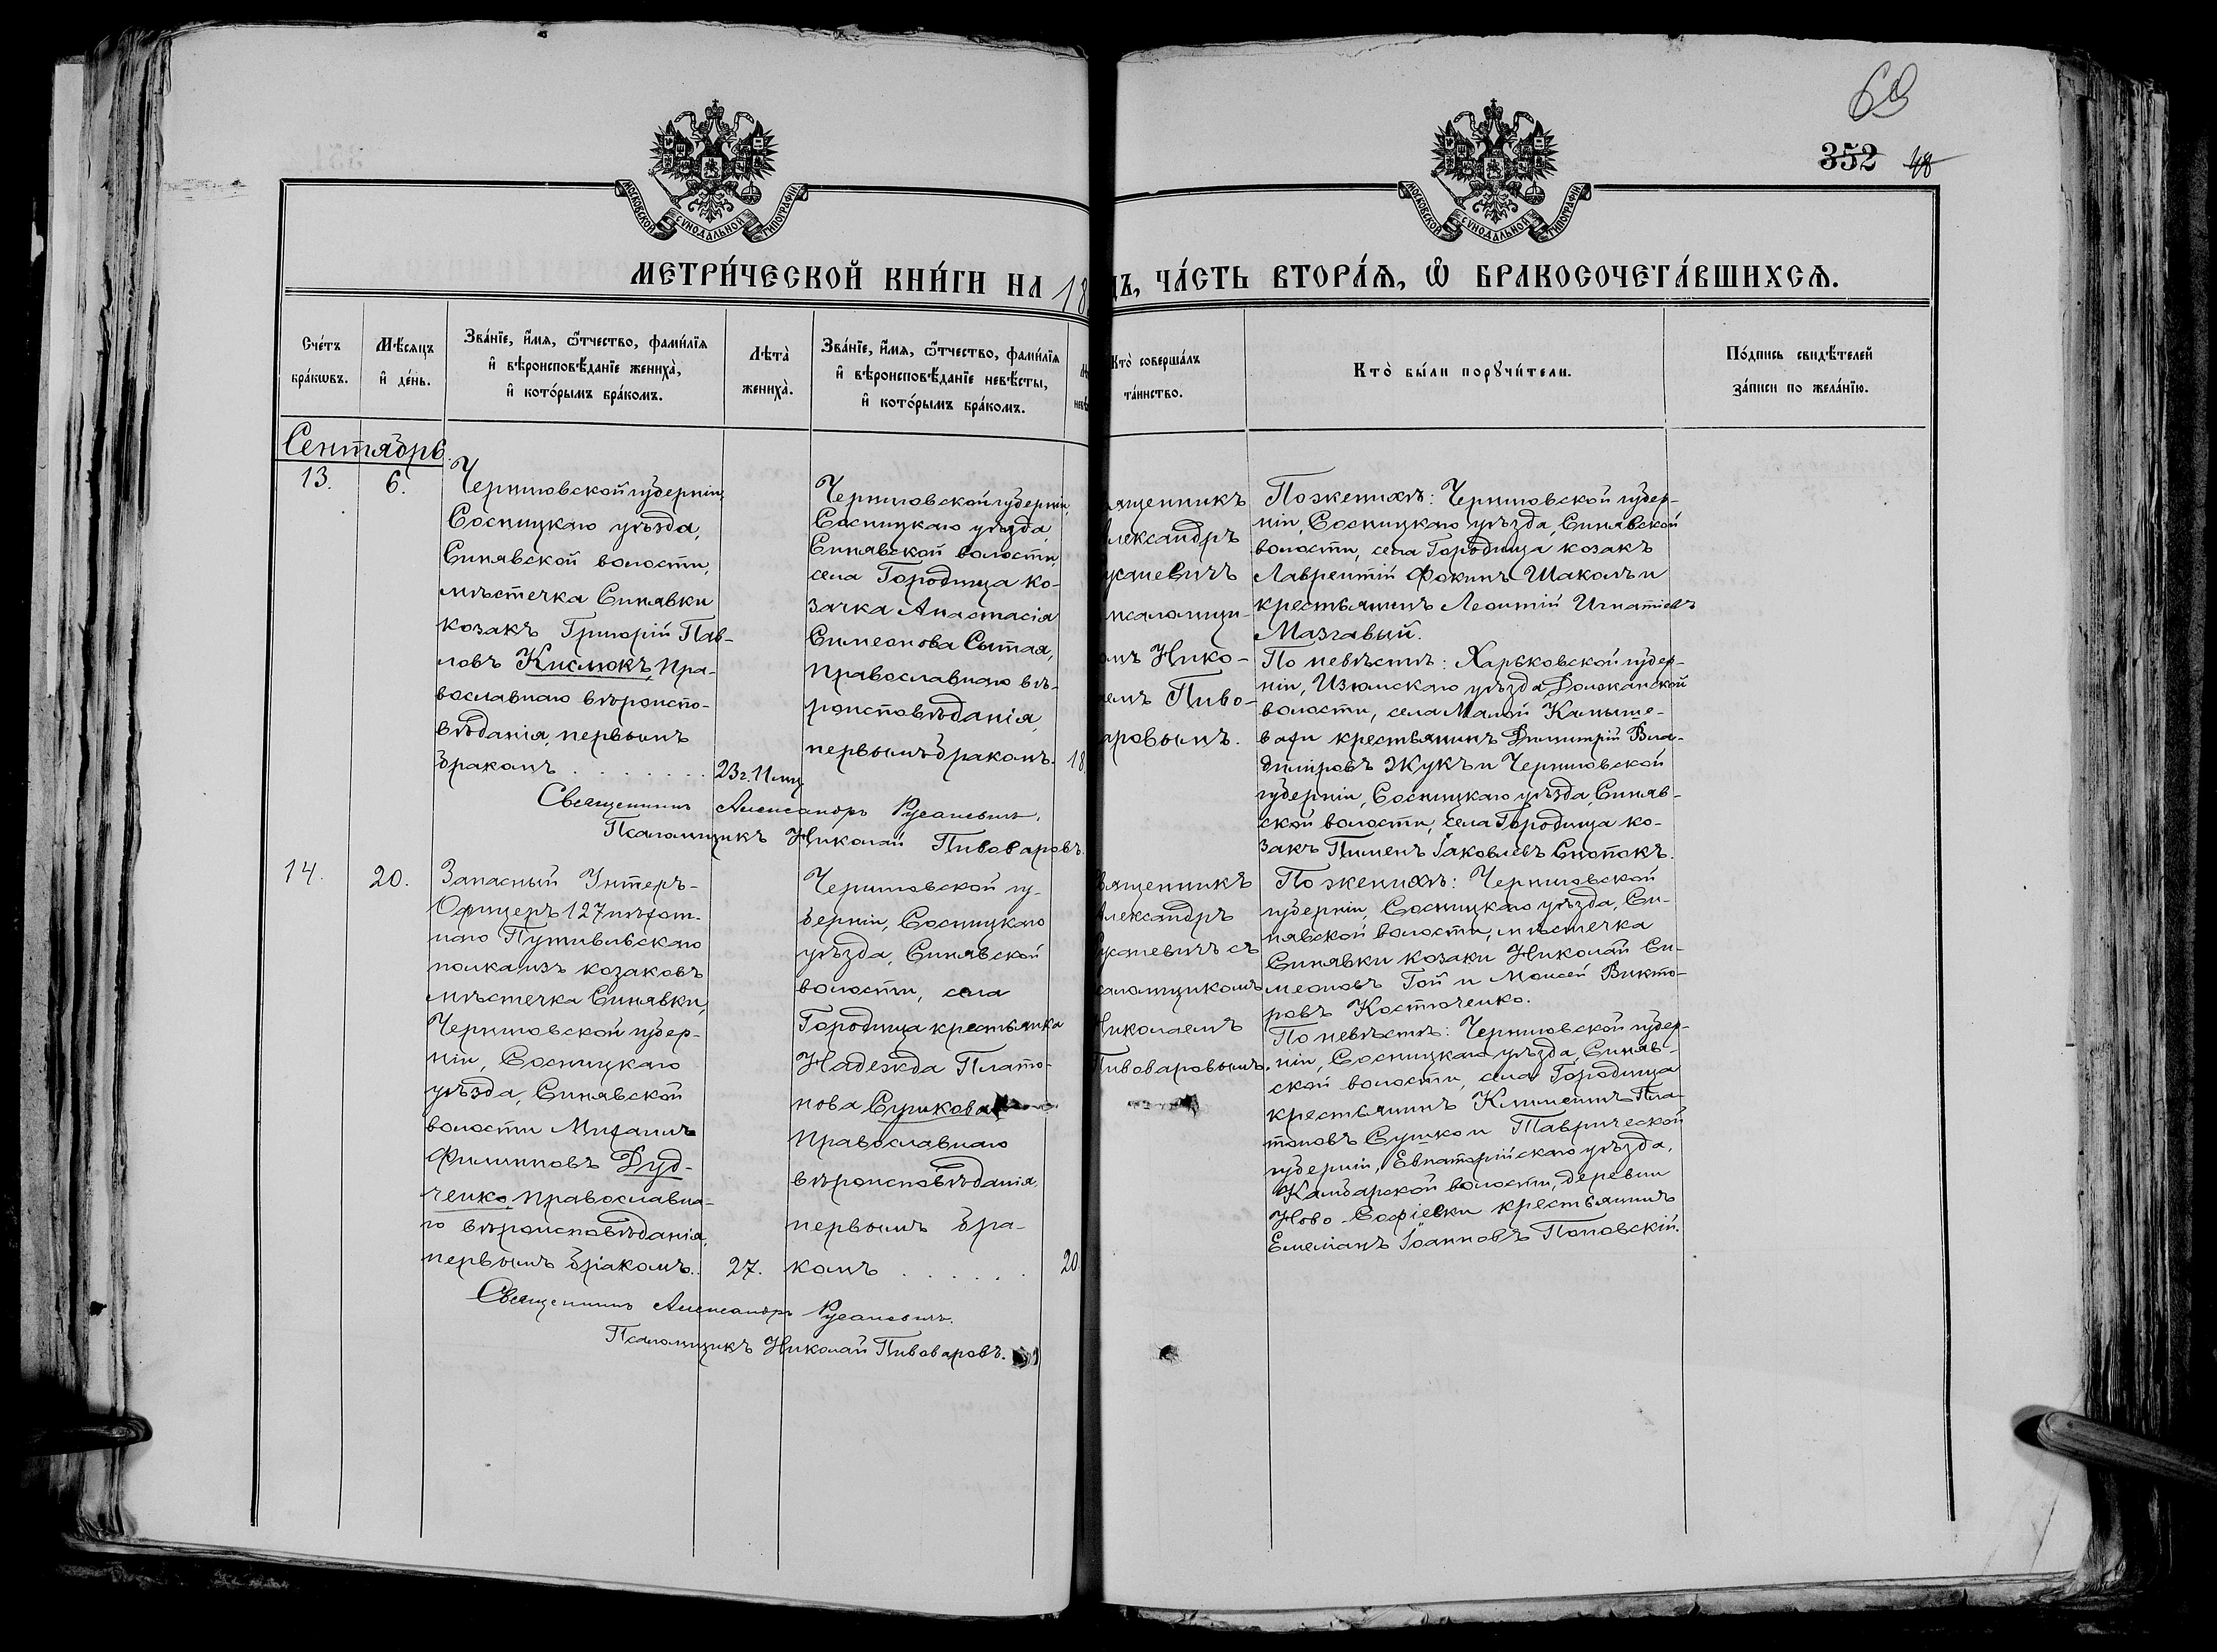 69
352 48
МОСКОВСКОЙ СѴНОДАЛЬНОЙ ТИПОГРАФІИ
МОСКОВСКОЙ СѴНОДАЛЬНОЙ ТИПОГРАФІИ
МЕТРИ́ЧЕСКОЙ КНИ́ГИ НА 18
ДЪ, ЧА́СТЬ ВТОРА́Ѧ, Ѽ БРАКОСОЧЕТА́ВШИХСѦ.
Сче́тъ
бра́кѡвъ.
Мѣ́сяцъ
и҆ де́нь.
Зва́нїе, и҆́мя, ѻ҆́тчество, фами́лїя
и҆ вѣроисповѣ́данїе жениха̀,
и҆ кото́рымъ бра́комъ.
Лѣта̀
жениха̀.
Зва́нїе, и҆́мя, ѻ҆́тчество, фами́лїя
и҆ вѣроисповѣ́данїе невѣ́сты,
и҆ кото́рымъ бра́комъ.
Кто̀ соверша́лъ
та́инство.
Кто̀ бы́ли порꙋчи́тели.
По́дпись свидѣ́телей
за́писи по жела́нїю.
Сентябрь.
13.
6.
Черниговской губерніи,
Сосницкаго уѣзда,
Синявской волости,
мѣстечка Синявки
козакъ Григорій Пав-
ловъ Кислюкъ, Пра-
вославнаго вѣроиспо-
вѣданія, первымъ
бракомъ . . . . . . .
23 г. 11 мц
Черниговской губерніи,
Сосницкаго уѣзда,
Синявской волости,
села Городища ко-
зачка Анастасія
Симеонова Сытая,
Православнаго вѣ-
роисповѣданія,
первымъ бракомъ.
18.
ященникъ
лександръ
усаневичъ
псаломщи-
омъ Нико-
аемъ Пиво-
аровымъ.
По женихѣ: Черниговской губер-
ніи, Сосницкаго уѣзда, Синявской
волости, села Городища козакъ
Лаврентій Фокинъ Шаколъ и
крестьянинъ Леонтій Игнатіевъ
Мазгавый.
По невѣстѣ: Харьковской губер-
ніи, Изюмскаго уѣзда Должанской
волости, села Малой Камыше-
вахи крестьянинъ Димитрій Вла-
диміровъ Жукъ и Черниговской
губерніи, Сосницкаго уѣзда, Синяв-
ской волости, села Городища ко-
закъ Пименъ Іаковлевъ Снопокъ.
Священникъ Александръ Русаневичъ.
Псаломщикъ Николай Пивоваровъ.
14.
20.
Запасный Унтеръ-
Офицеръ 127 пѣхот-
наго Путивльскаго
полка изъ козаковъ
мѣстечка Синявки,
Черниговской губер-
ніи, Сосницкаго
уѣзда, Синявской
волости Михаилъ
Филипповъ Дуд-
ченко, Православна-
го вѣроисповѣданія,
первымъ бракомъ..
27.
Черниговской гу-
берніи, Сосницкаго
уѣзда, Синявской
волости, села
Городища крестьянка
Надежда Плато-
нова Сушкова
Православнаго
вѣроисповѣданія,
первымъ бра-
комъ . . . . . .
20.
вященникъ
Александръ
Русаневичъ съ
саломщикомъ
Николаемъ
Пивоваровымъ.
По женихѣ: Черниговской
губерніи, Сосницкаго уѣзда, Си-
нявской волости, мѣстечка
Синявки козаки Николай Си-
меоновъ Гой и Моисей Викто-
ровъ Костюченко.
По невѣстѣ: Черниговской губер-
ніи, Сосницкаго уѣзда, Синяв-
ской волости, села Городища
крестьянинъ Климентъ Пла-
тоновъ Сушко и Таврической
губерніи, Евпаторійскаго уѣзда,
Камбарской волости, деревни
Ново-Софіевки крестьянинъ
Емеліанъ Іоанновъ Поповскій.
Священникъ Александръ Русаневичъ.
Псаломщикъ Николай Пивоваровъ.